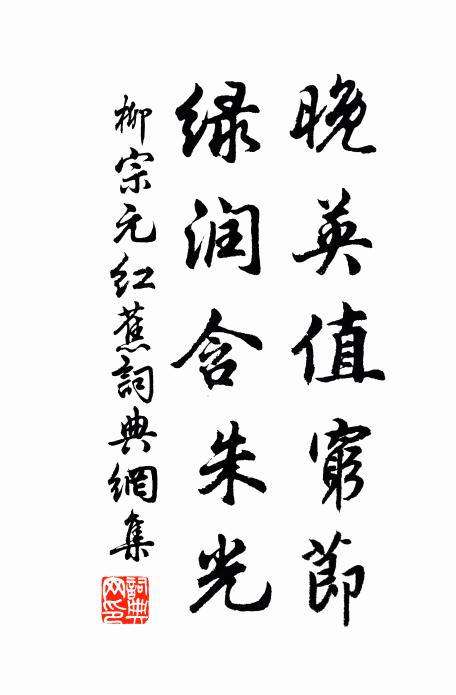 晚英值窮節
绿润含朱光
柳宗元红蕉詞典網集
詞典网印